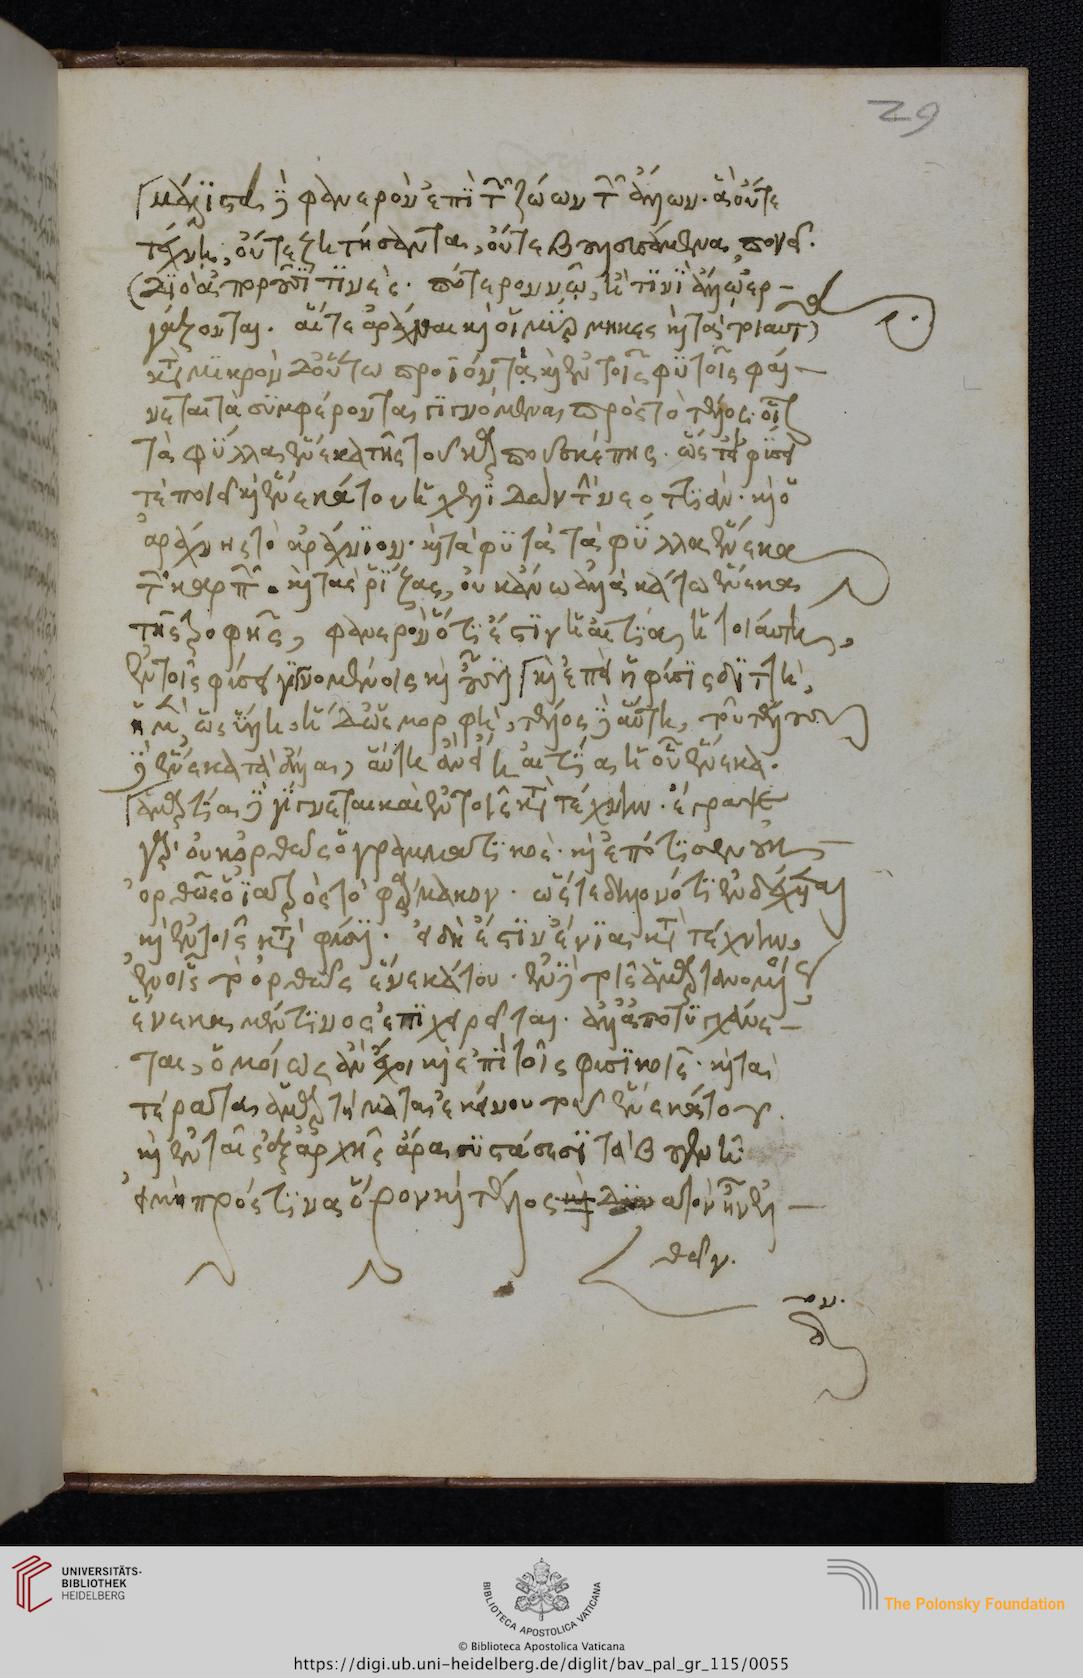 29
μάλιστα δὲ φανερὸν ἐπὶ τῶν ζώων τῶν ἄλλων. ἃ οὔτε
τέχνῃ, οὔτε ζητήσαντα, οὔτε βουλευσάμενα, ποιεῖ.
διὸ ἀποροῦσί τινες. πότερον νῷ, ἢ τινὶ ἄλλῳ ἐρ-
γάζονται. αἵ τε ἀράχναι καὶ οἱ μύρμηκες καὶ τὰ τοιαῦτα
κατὰ μικρὸν δ' οὕτω προϊόντα καὶ ἐν τοῖς φυτοῖς φαί-
νεται τὰ συμφέροντα γινόμενα πρὸς τὸ τέλος. οἷον
τὰ φύλλα ἕνεκα τῆς τοῦ καρποῦ σκέπης. ὥστε φύσει
τε ποιεῖ καὶ ἕνεκά του ἡ χελιδὼν τὴν νεοττιάν. καὶ ὁ
ἀράχνης τὸ ἀράχνιον. καὶ τὰ φυτὰ τὰ φύλλα ἕνεκα
τῶν καρπῶν. καὶ τὰς ῥίζας, οὐκ ἄνω ἀλλὰ κάτω ἕνεκα
τῆς τροφῆς, φανερὸν ὅτι ἔστιν ἡ αἰτία ἡ τοιαύτη,
ἐν τοῖς φύσει γινομένοις καὶ οὖσι καὶ ἐπεὶ ἡ φύσις διττή,
ἡ μὲν, ὡς ὕλη, ἡ δ' ὡς μορφή, τέλος δὲ αὕτη, τοῦ τέλους
δὲ ἕνεκα τὰ ἄλλα, αὕτη ἂν εἴη αἰτία ἡ οὗ ἕνεκα.
ἁμαρτία δὲ γίνεται καὶ ἐν τοῖς κατὰ τέχνην. ἔγραψε
γὰρ οὐκ ὀρθῶς ὁ γραμματικός. καὶ ἐπότισεν οὐκ
ὀρθῶς ὁ ἰατρὸς τὸ φάρμακον. ὥστε δηλονότι ἐνδέχεται
καὶ ἐν τοῖς κατὰ φύσιν. εἰ δὴ ἔστιν ἔνια κατὰ τέχνην,
ἐν οἷς τὸ ὀρθῶς ἕνεκά του. ἐν δὲ τοῖς ἁμαρτανομένοις
ἕνεκα μέν τινος ἐπιχειρεῖται. ἀλλ' ἀποτυγχάνε-
ται, ὁμοίως ἂν ἔχοι καὶ ἐπὶ τοῖς φυσικοῖς. καὶ τὰ
τέρατα ἁμαρτήματα ἐκείνου τοῦ ἕνεκά του.
καὶ ἐν ταῖς ἐξ ἀρχῆς ἄρα συστάσεσι τὰ βουγενῆ
εἰ μὴ πρός τινα ὅρον καὶ τέλος δυνατὸν ἦν ἐλ-
θεῖν.